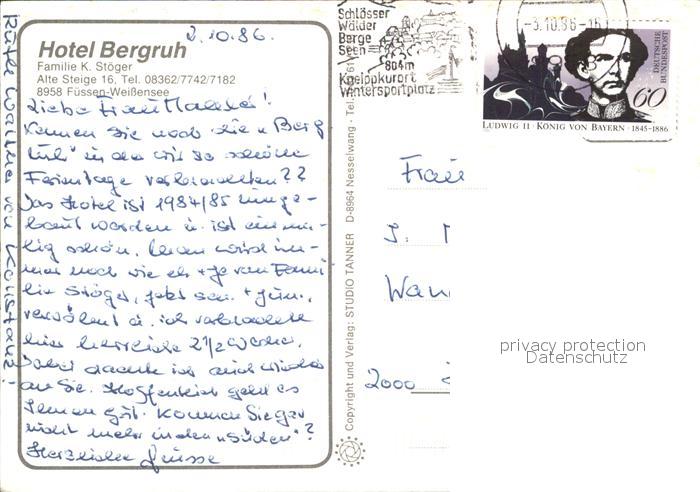 2.10.86.
Hotel Bergruh
Familie K. Stöger
Alte Steige 16, Tel. 08362/7742/7182
8958 Füssen-Weißensee
Liebe Frau
Kennen Sie noch die „Berg
ruh" in der wir so schöne
Ferientage verbrachten??
Das Hotel ist 1984/85 umge-
baut worden u. ist ein ma-
lig schön, wird im-
mer noch wie eh + je von Fami
lie Stöger, jetzt sen. + jun.,
verwöhnt u. ich verbrachte
hier herrliche 2½ Wochen.
Dabei dachte ich auch wieder
an Sie. Hoffentlich geht es
Ihnen gut. Kommen Sie gar
nicht mehr in den „Süden"?
Herzliche Grüsse
von Konstanz.
Copyright und Verlag: STUDIO TANNER D-8964 Nesselwang · Tel.
Schlösser
Wälder
Berge
Seen
804m
Kneippkurort
Wintersportplatz
-3.10.86-15
DEUTSCHE
BUNDESPOST
60
LUDWIG II · KÖNIG VON BAYERN · 1845-1886
Frau
J.
Wan
2000
privacy protection
Datenschutz